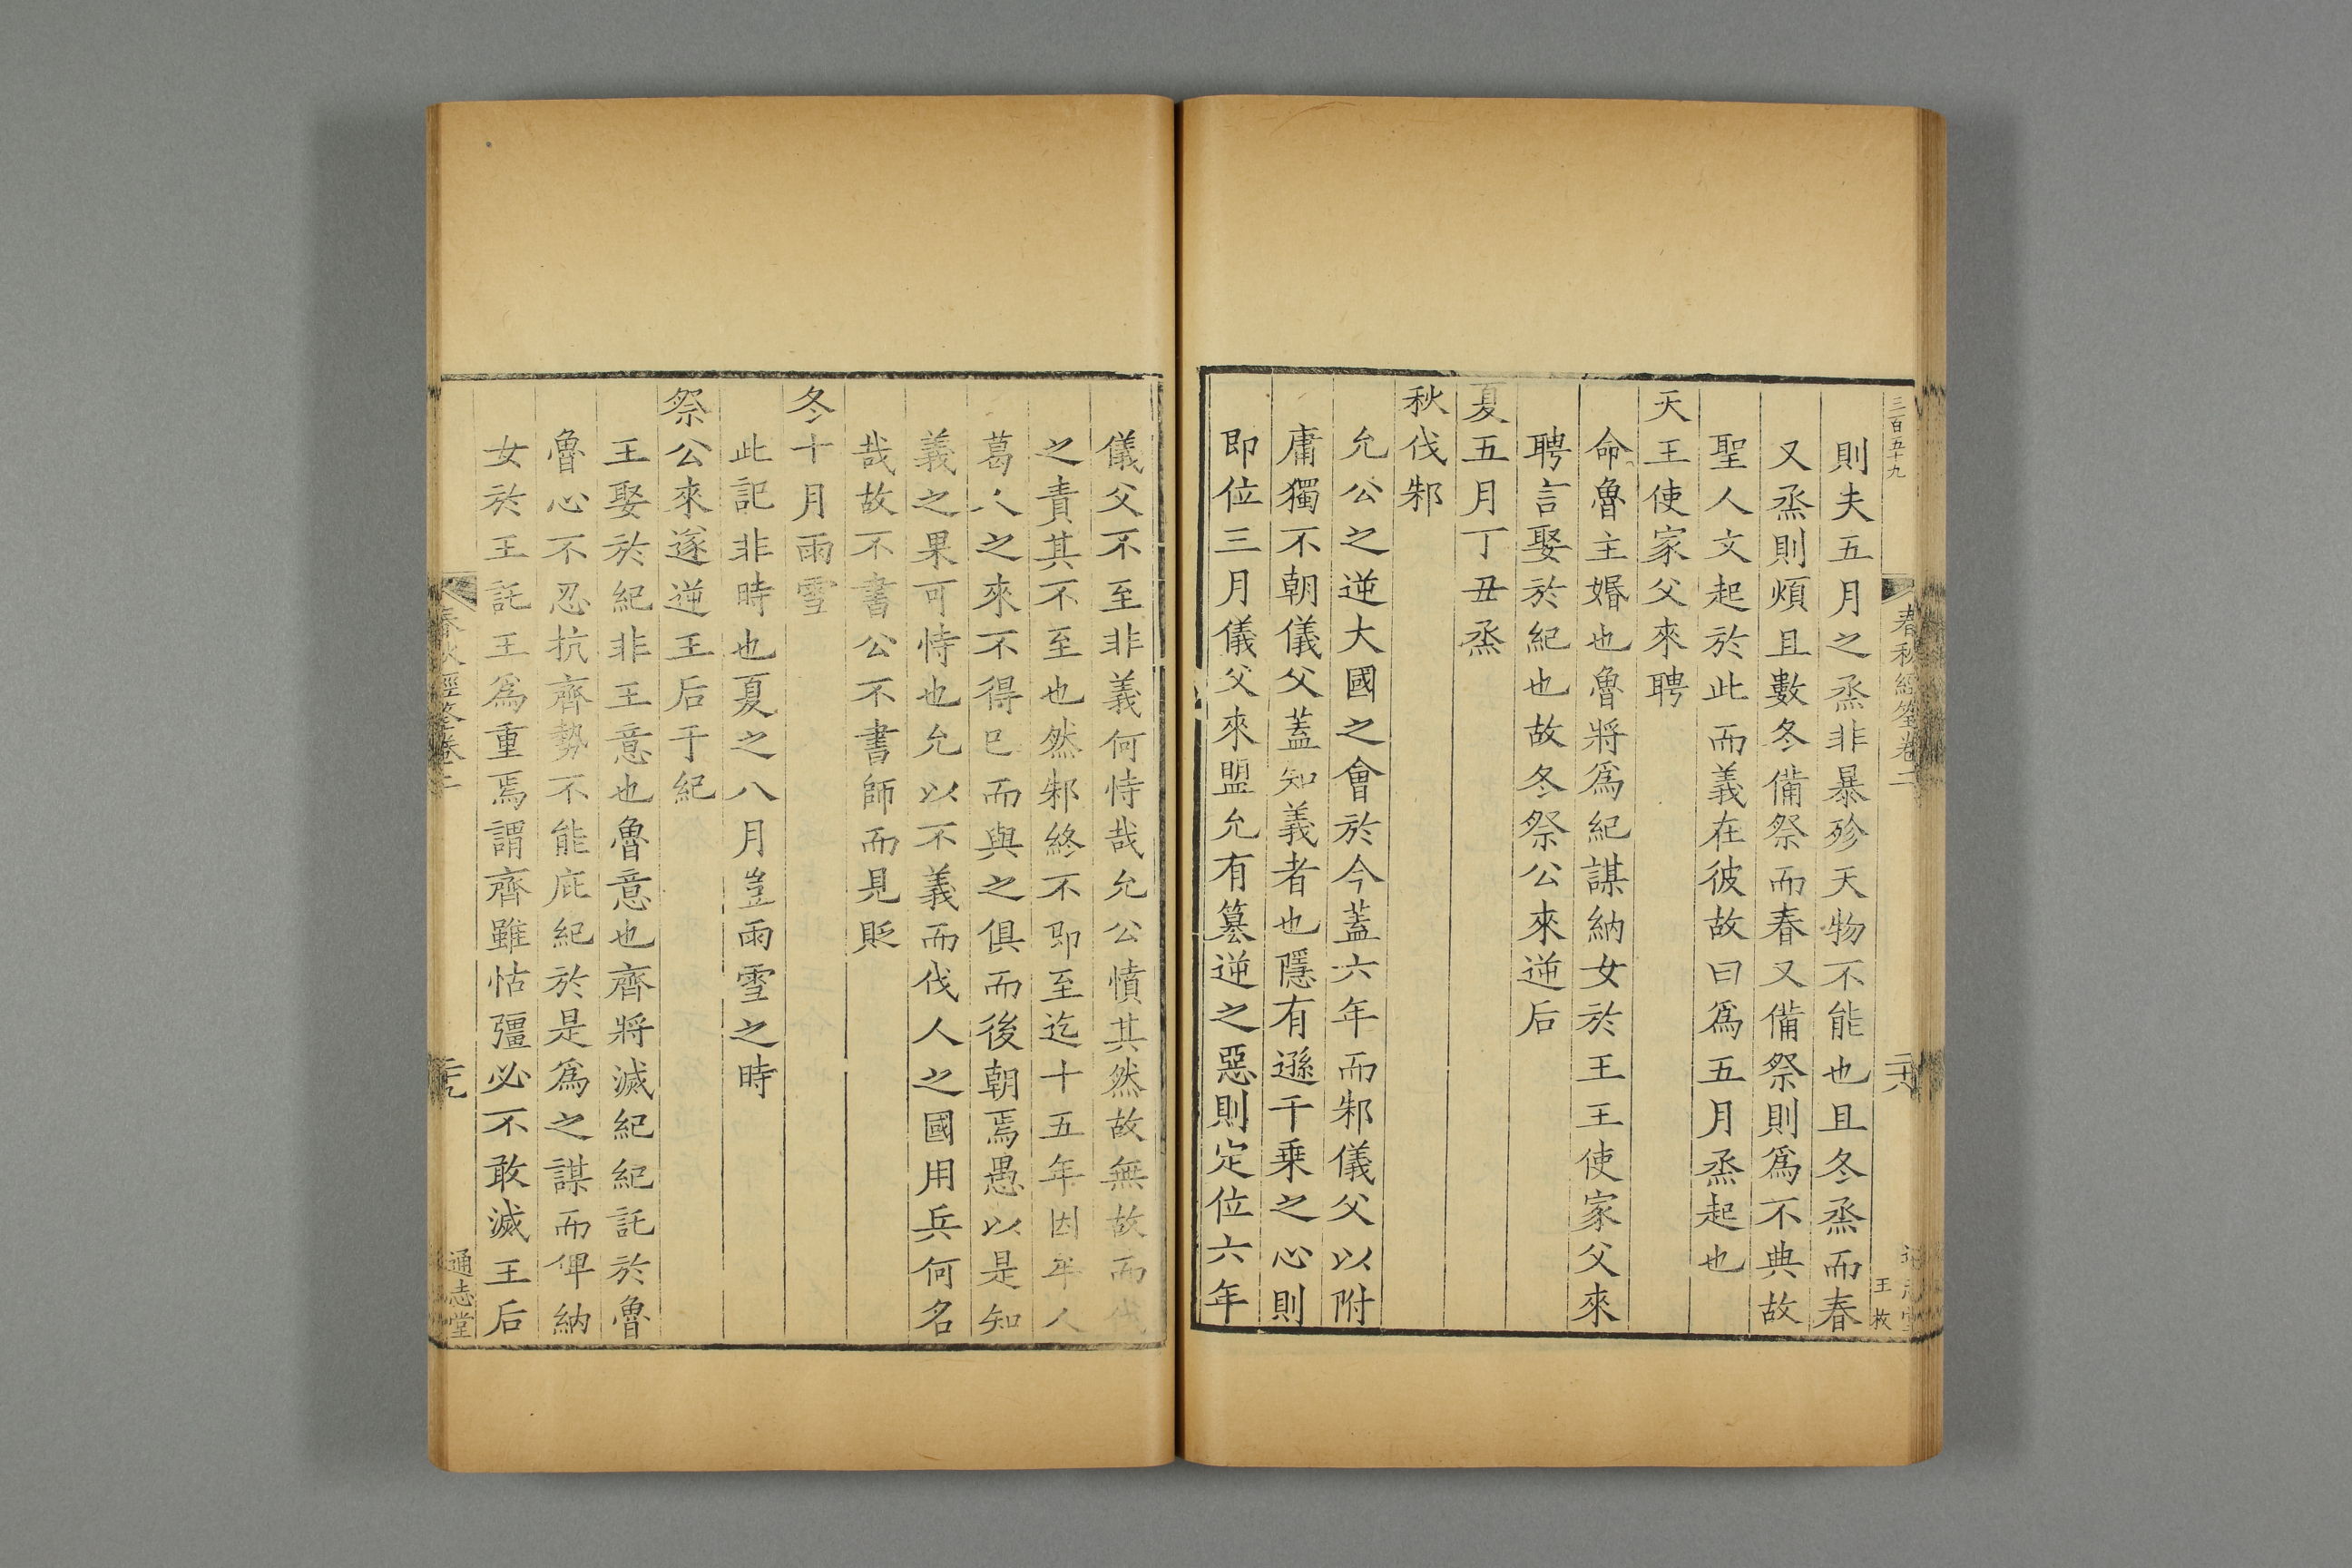 三百五十九
春秋經筌卷二
二十八
王 枚
則夫五月之烝非暴殄天物不能也且冬烝而春
又烝則煩且數冬備祭而春又備祭則爲不典故
聖人文起於此而義在彼故曰爲五月烝起也
天王使家父來聘
命魯主婚也魯將爲紀謀納女於王王使家父來
聘言娶於紀也故冬祭公來逆后
夏五月丁丑烝
秋伐邾
允公之逆大國之會於今蓋六年而邾儀父以附
庸獨不朝儀父蓋知義者也隱有遜千乗之心則
即位三月儀父來盟允有簒逆之惡則定位六年
儀父不至非義何恃哉允公憤其然故無故而伐
之責其不至也然邾終不即至迄十五年因牟人
葛人之來不得已而與之俱而後朝焉愚以是知
義之果可恃也允以不義而伐人之國用兵何名
哉故不書公不書師而見貶
冬十月雨雪
此記非時也夏之八月豈雨雪之時
祭公來遂逆王后于紀
王娶於紀非王意也魯意也齊將滅紀紀託於魯
魯心不忍抗齊勢不能庇紀於是爲之謀而俾納
女於王託王爲重焉謂齊雖怙彊必不敢滅王后
春秋經筌卷二
二十九
通志堂